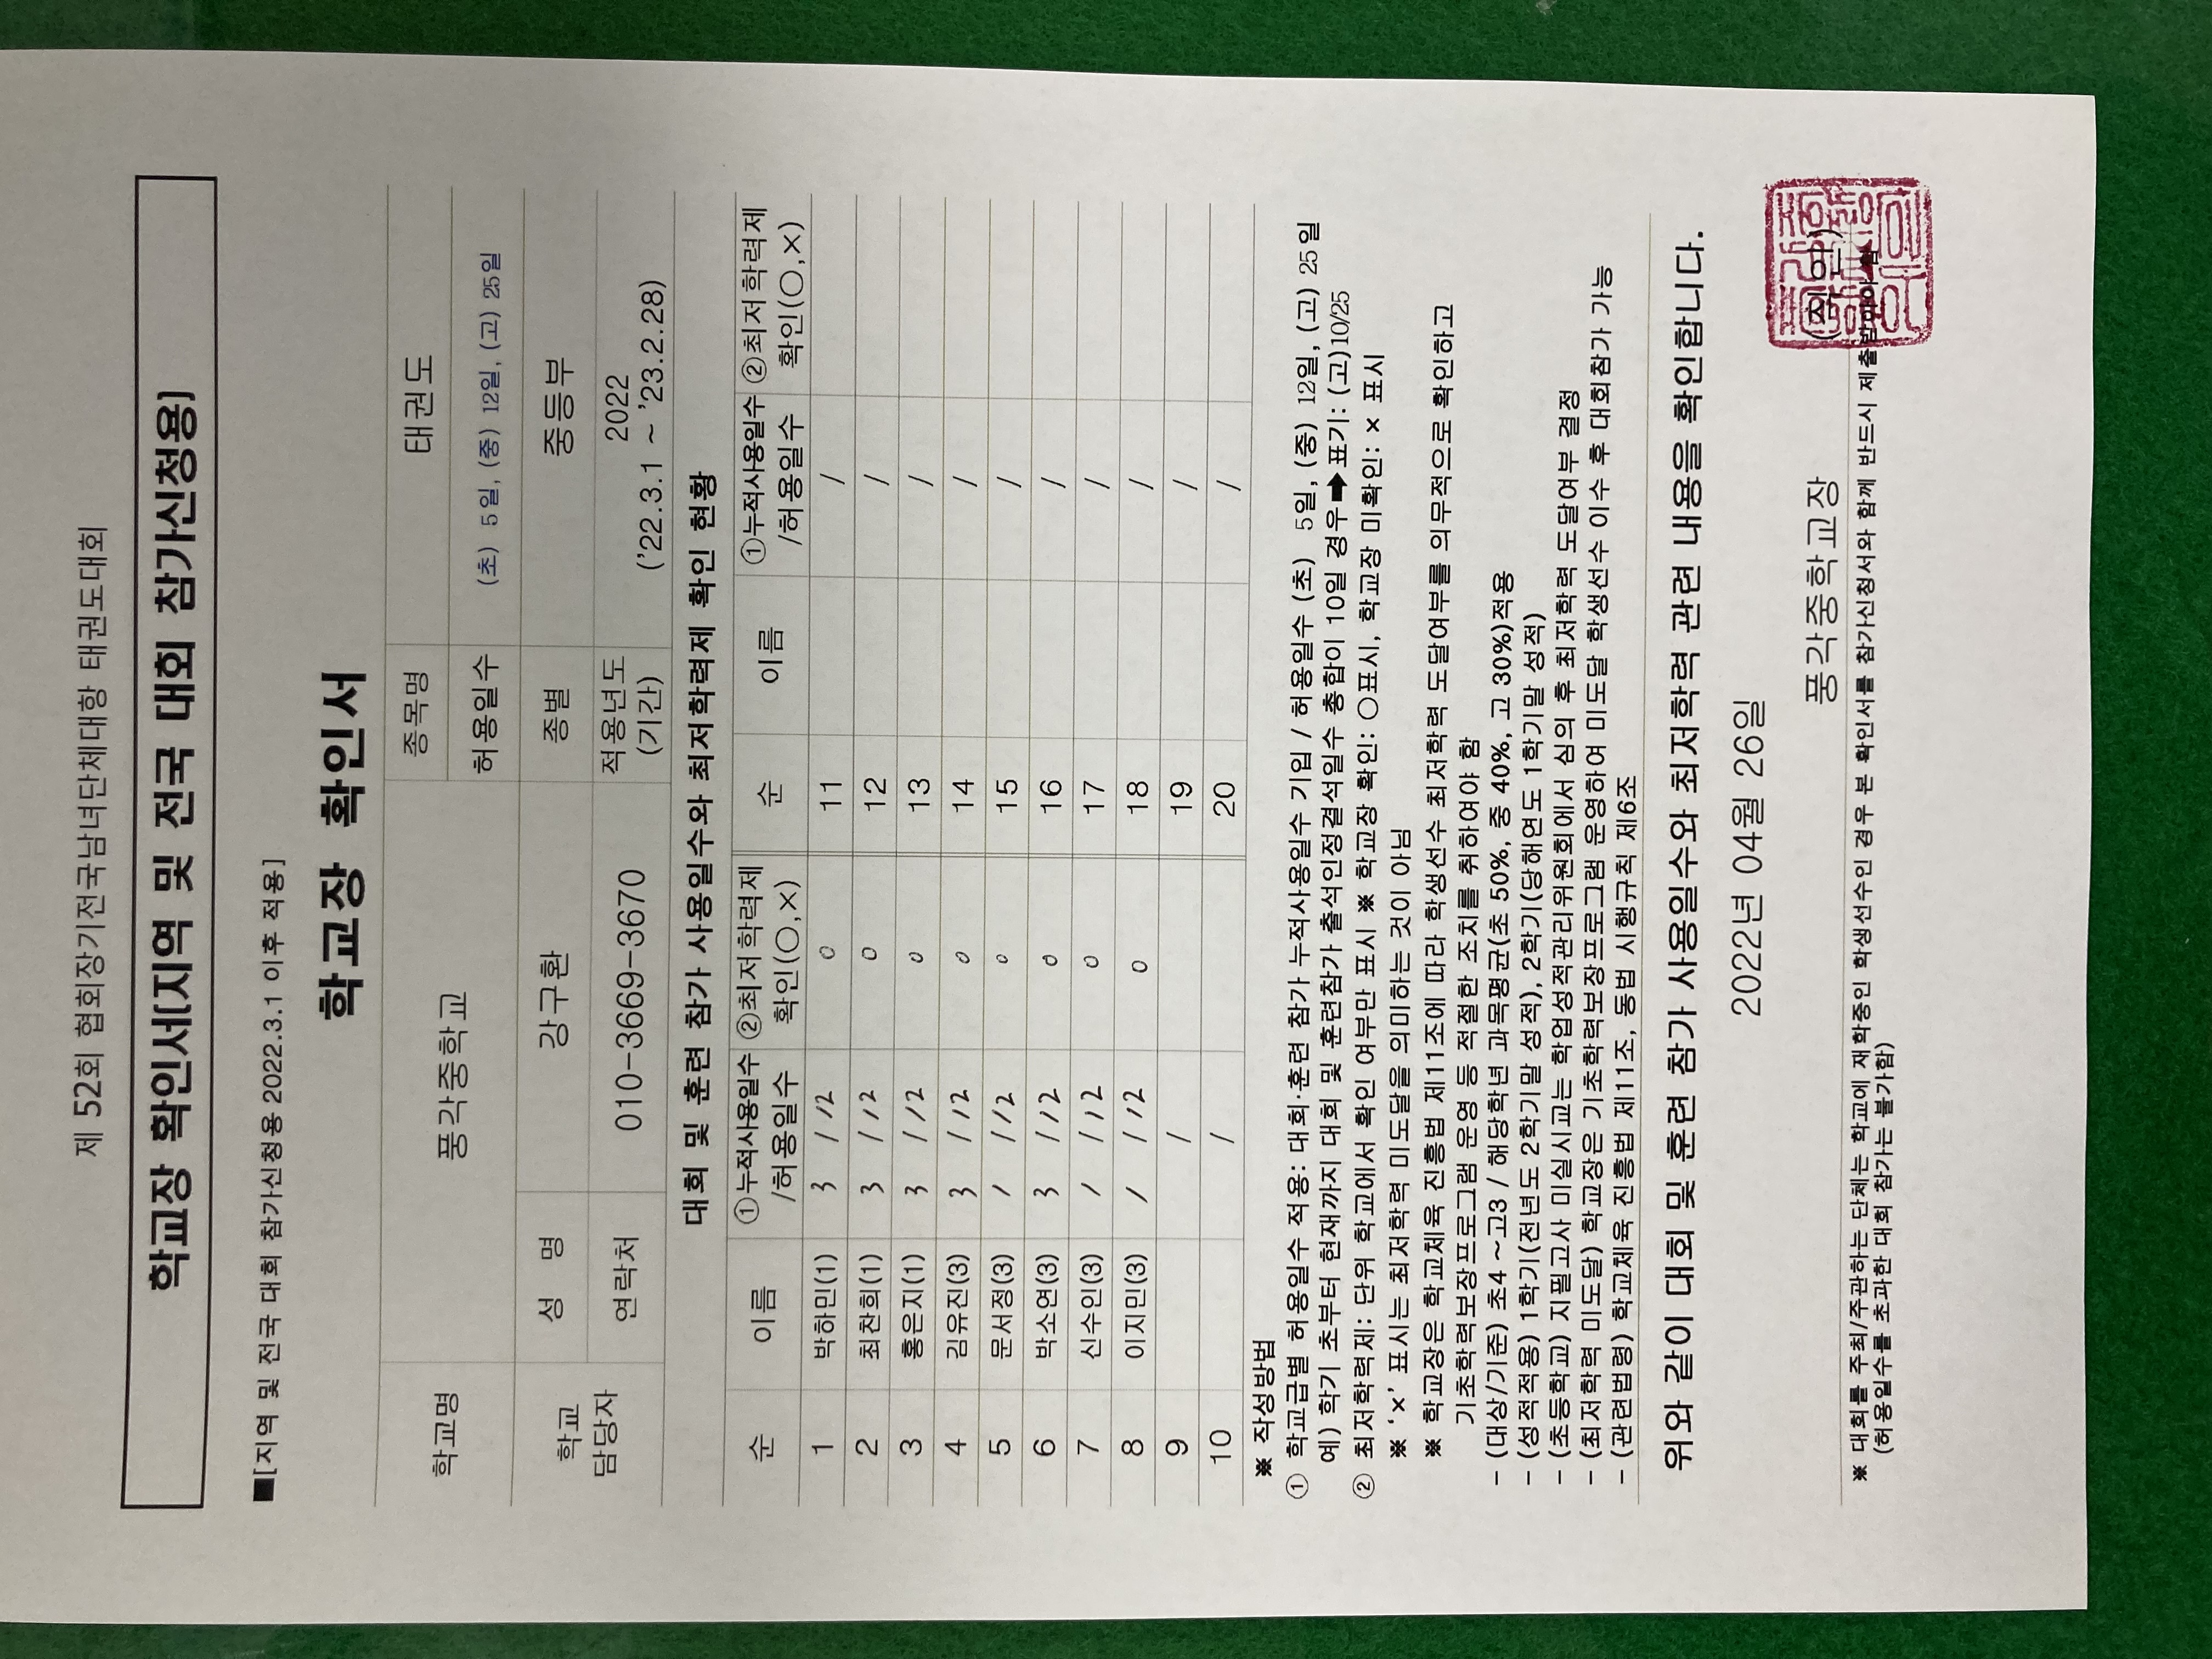 제 52회 협회장기전국남녀단체대항 태권도대회
학교장 확인서[지역 및 전국 대회 참가신청용]
■[지역 및 전국 대회 참가신청용 2022.3.1 이후 적용]
학교장 확인서
학교명 풍각중학교 종목명 태권도
허용일수 (초) 5일, (중) 12일, (고) 25일
학교 담당자 성 명 강구환 종별 중등부
연락처 010-3669-3670 적용년도 (기간) 2022 ('22.3.1 ~ '23.2.28)
대회 및 훈련 참가 사용일수와 최저학력제 확인 현황
순 이름 ①누적사용일수 /허용일수 ②최저학력제 확인(○,×) 순 이름 ①누적사용일수 /허용일수 ②최저학력제 확인(○,×)
1 박하민(1) 3 / 12 ○ 11 /
2 최찬희(1) 3 / 12 ○ 12 /
3 홍은지(1) 3 / 12 ○ 13 /
4 김유진(3) 3 / 12 ○ 14 /
5 문서정(3) 1 / 12 ○ 15 /
6 박소연(3) 3 / 12 ○ 16 /
7 신수인(3) 1 / 12 ○ 17 /
8 이지민(3) 1 / 12 ○ 18 /
9 / 19 /
10 / 20 /
※ 작성방법
① 학교급별 허용일수 적용: 대회·훈련 참가 누적사용일수 기입 / 허용일수 (초) 5일, (중) 12일, (고) 25일
예) 학기 초부터 현재까지 대회 및 훈련참가 출석인정결석일수 총합이 10일 경우➡표기: (고)10/25
② 최저학력제: 단위 학교에서 확인 여부만 표시 ※ 학교장 확인: ○표시, 학교장 미확인: × 표시
※ '×' 표시는 최저학력 미도달을 의미하는 것이 아님
※ 학교장은 학교체육 진흥법 제11조에 따라 학생선수 최저학력 도달여부를 의무적으로 확인하고
기초학력보장프로그램 운영 등 적절한 조치를 취하여야 함
- (대상/기준) 초4 ~고3 / 해당학년 과목평균(초 50%, 중 40%, 고 30%)적용
- (성적적용) 1학기(전년도 2학기말 성적), 2학기(당해연도 1학기말 성적)
- (초등학교) 지필고사 미실시교는 학업성적관리위원회에서 심의 후 최저학력 도달여부 결정
- (최저학력 미도달) 학교장은 기초학력보장프로그램 운영하여 미도달 학생선수 이수 후 대회참가 가능
- (관련법령) 학교체육 진흥법 제11조, 동법 시행규칙 제6조
위와 같이 대회 및 훈련 참가 사용일수와 최저학력 관련 내용을 확인합니다.
2022년 04월 26일
풍각중학교장 (직인)
※ 대회를 주최/주관하는 단체는 학교에 재학중인 학생선수인 경우 본 확인서를 참가신청서와 함께 반드시 제출받아야 함
(허용일수를 초과한 대회 참가는 불가함)